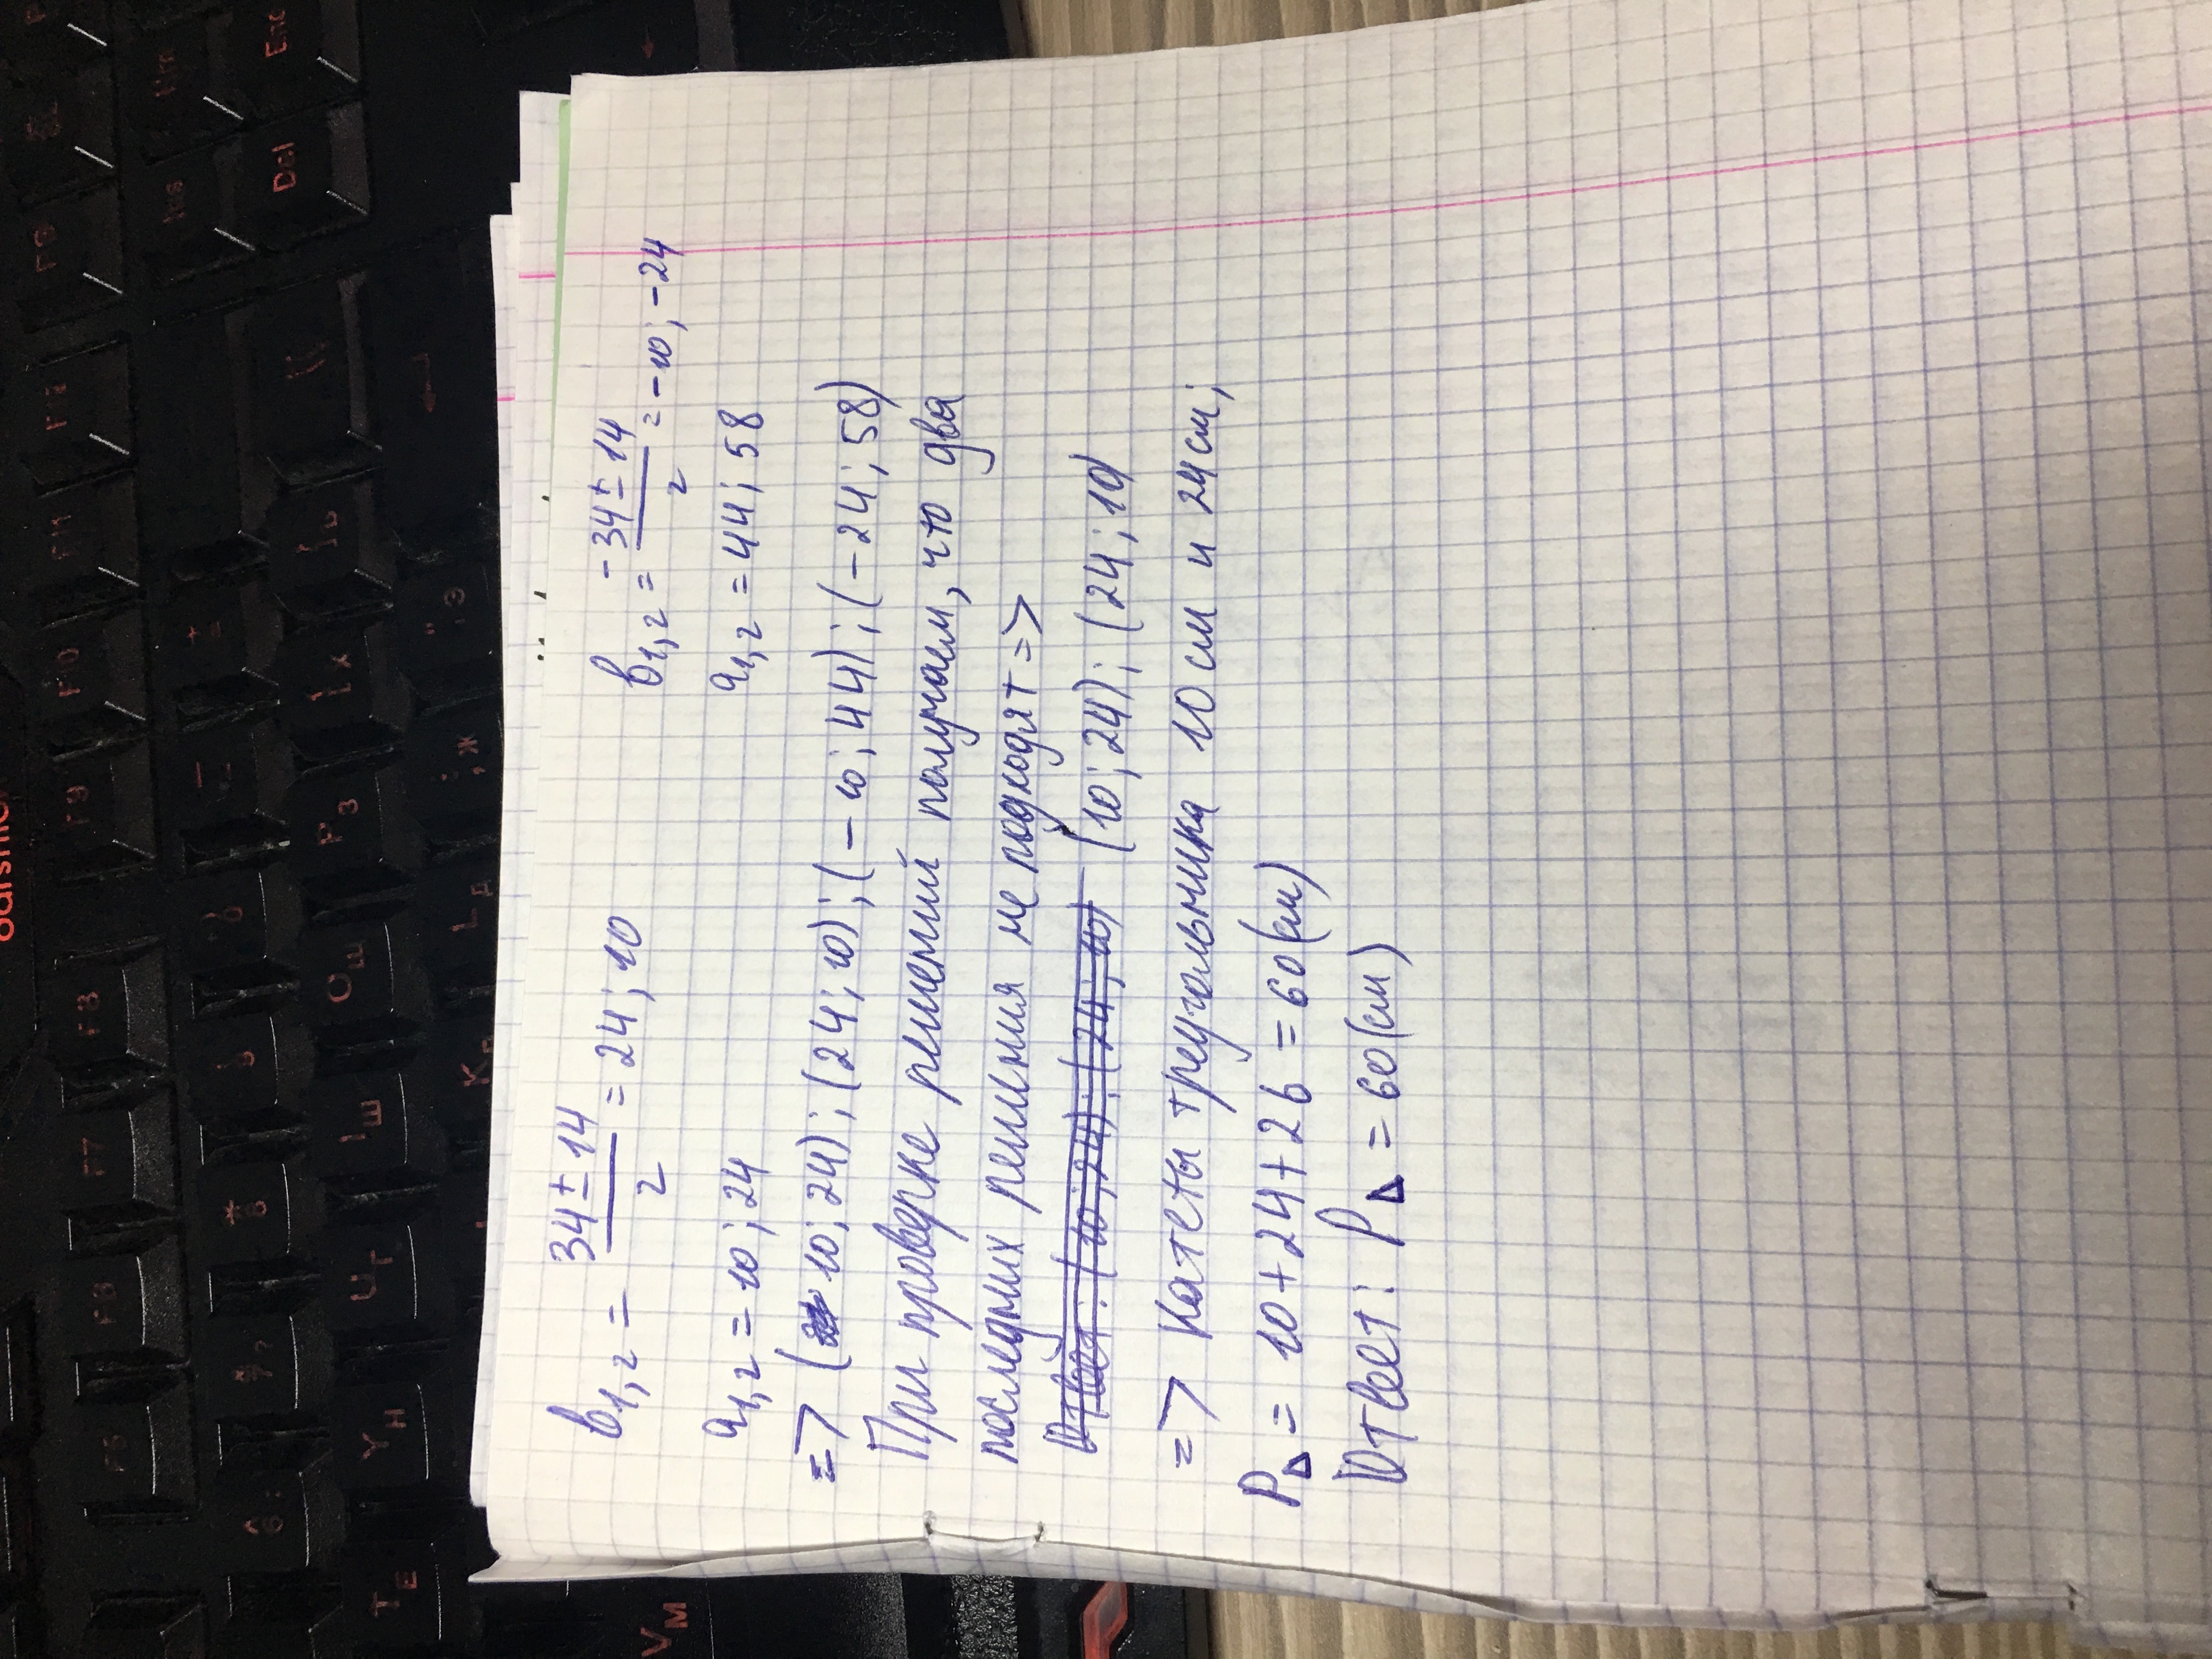 b₁,₂ = (34 ± 14)/2 = 24; 10
b₁,₂ = (-34 ± 14)/2 = -10; -24
a₁,₂ = 10; 24
a₁,₂ = 44; 58
=> (10; 24); (24; 10); (-10; 44); (-24; 58)
При проверке решений получаем, что два
последних решения не подходят =>
Ответ: (10; 24); (24; 10) (10; 24); (24; 10)
=> Катеты треугольника 10 см и 24 см;
P△ = 10 + 24 + 26 = 60 (см)
Ответ: P△ = 60 (см)
F5
F6
F7
F8
F9
F10
F11
F12
Del
Ins
End